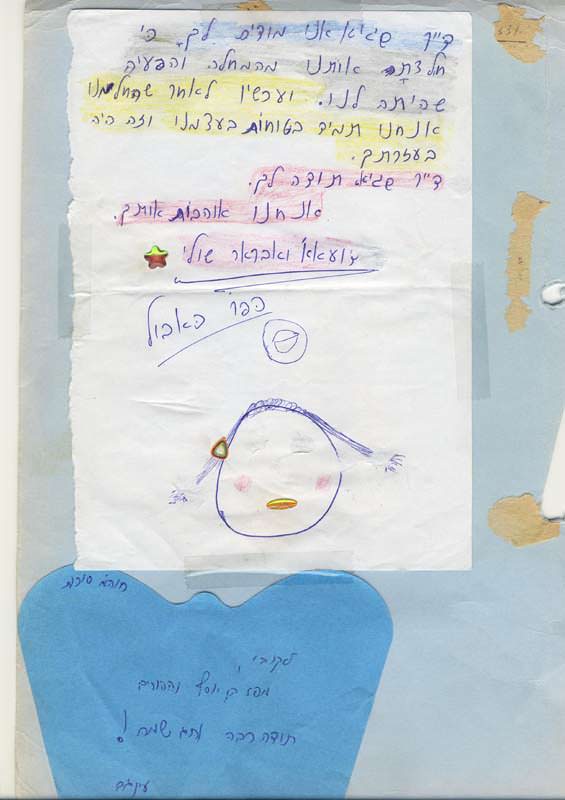 ד״ר שגיא אנו מודים לך, כי
חלצת אותנו מהמחלה והפעיה
שהיתה לנו. ועכשיו לאחר שהחלמנו
אנחנו תמיד בטוחות בעצמנו וזה היה
בעזרתך.
ד״ר שגיא תודה לך.
אנחנו אוהבות אותך.
דועאא ואבראר שולי
כפר כאבול
לקובי,
מפז בן יוסף וההורים
תודה רבה וחג שמח!